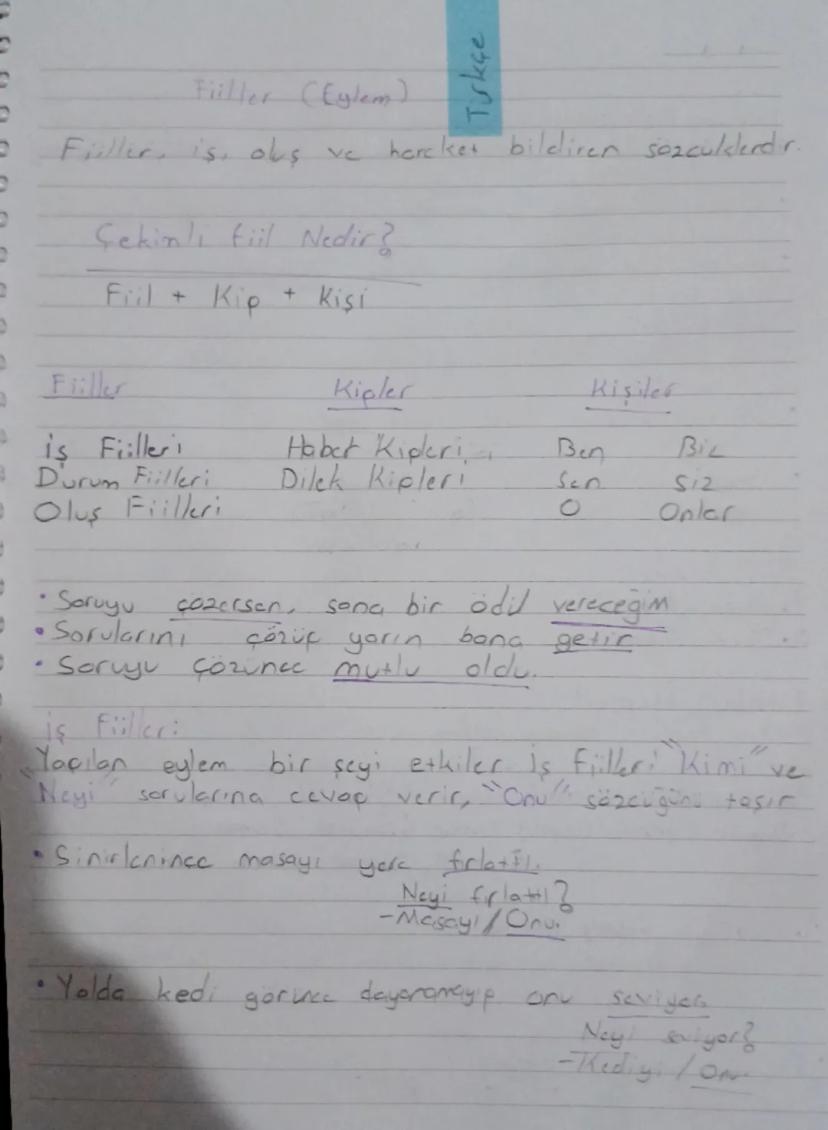 Türkçe
Fiiller (Eylem)
Fiiller, iş, oluş ve hareket bildiren sözcüklerdir.
Çekimli fiil Nedir?
Fiil + Kip + Kişi
Fiiller Kipler Kişiler
iş Fiilleri Haber Kipleri Ben Biz
Durum Fiilleri Dilek Kipleri Sen Siz
Oluş Fiilleri O Onlar
• Soruyu çözersen, sana bir ödül vereceğim
• Sorularını çözüp yarın bana getir
• Soruyu çözünce mutlu oldu.
iş Fiilleri:
Yapılan eylem bir şeyi etkiler iş fiilleri "Kimi" ve
"Neyi" sorularına cevap verir, "Onu" sözcüğünü taşır
• Sinirlenince masayı yere fırlattı.
Neyi fırlattı?
-Masayı / Onu.
• Yolda kedi görünce dayanamayıp onu seviyor.
Neyi seviyor?
-Kediyi / Onu